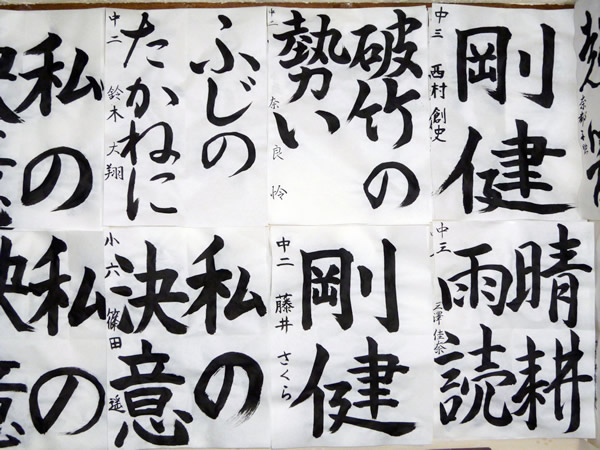 剛健
中三 西村創史
破竹の
勢い
中二 奈良怜
ふじの
たかねに
中二 鈴木大翔
私の
決意
晴耕
雨読
中三 三澤佳奈
剛健
中二 藤井さくら
私の
決意
小六 篠田遥
私の
決意